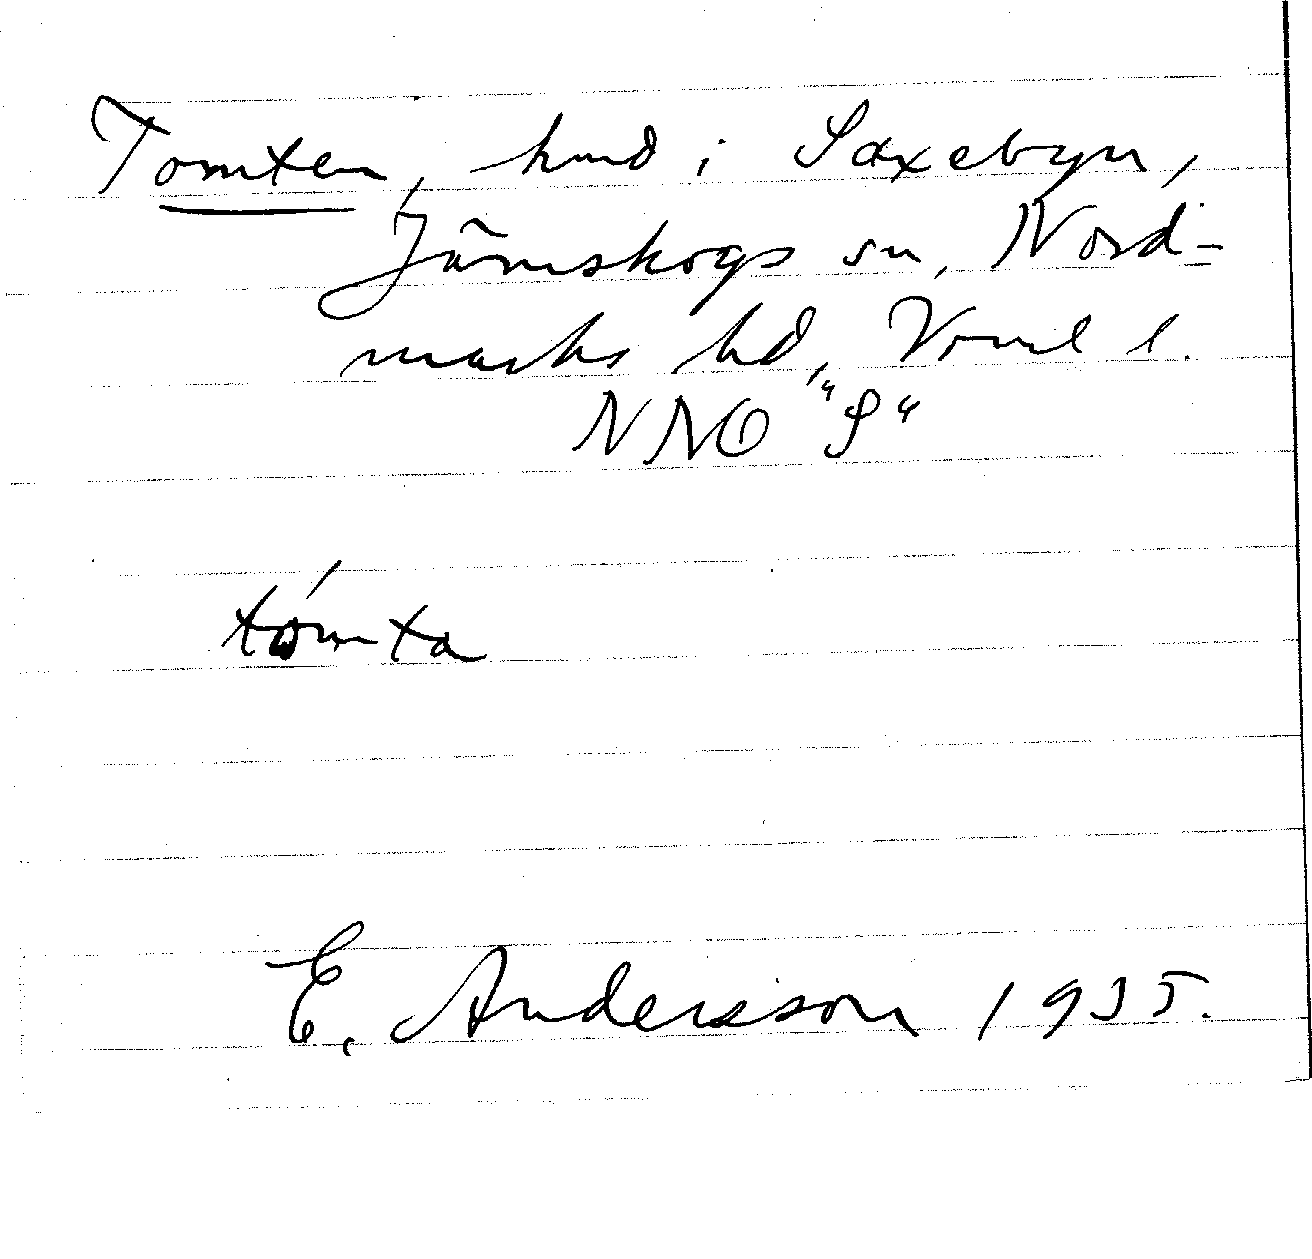 Tomten, hmd i Saxebyn,
Järnskogs sn, Nord-
marks hd, Vrml l.
NNO "S"
tómta
E. Andersson 1935.